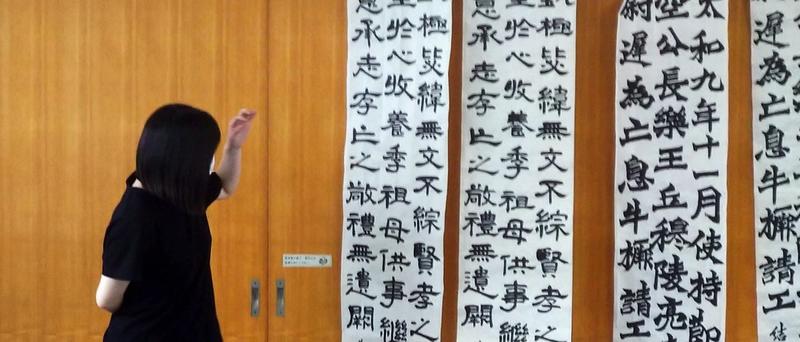 遲為亡息牛橛請工
太和九年十一月使持節
空公長樂王丘穆陵亮
尉遲為亡息牛橛請工
極毖緯無文不綜賢孝之
生於心收養季祖母供事繼
意承志存亡之敬禮無遺闕
極毖緯無文不綜賢孝之
生於心收養季祖母供事繼
意承志存亡之敬禮無遺闕